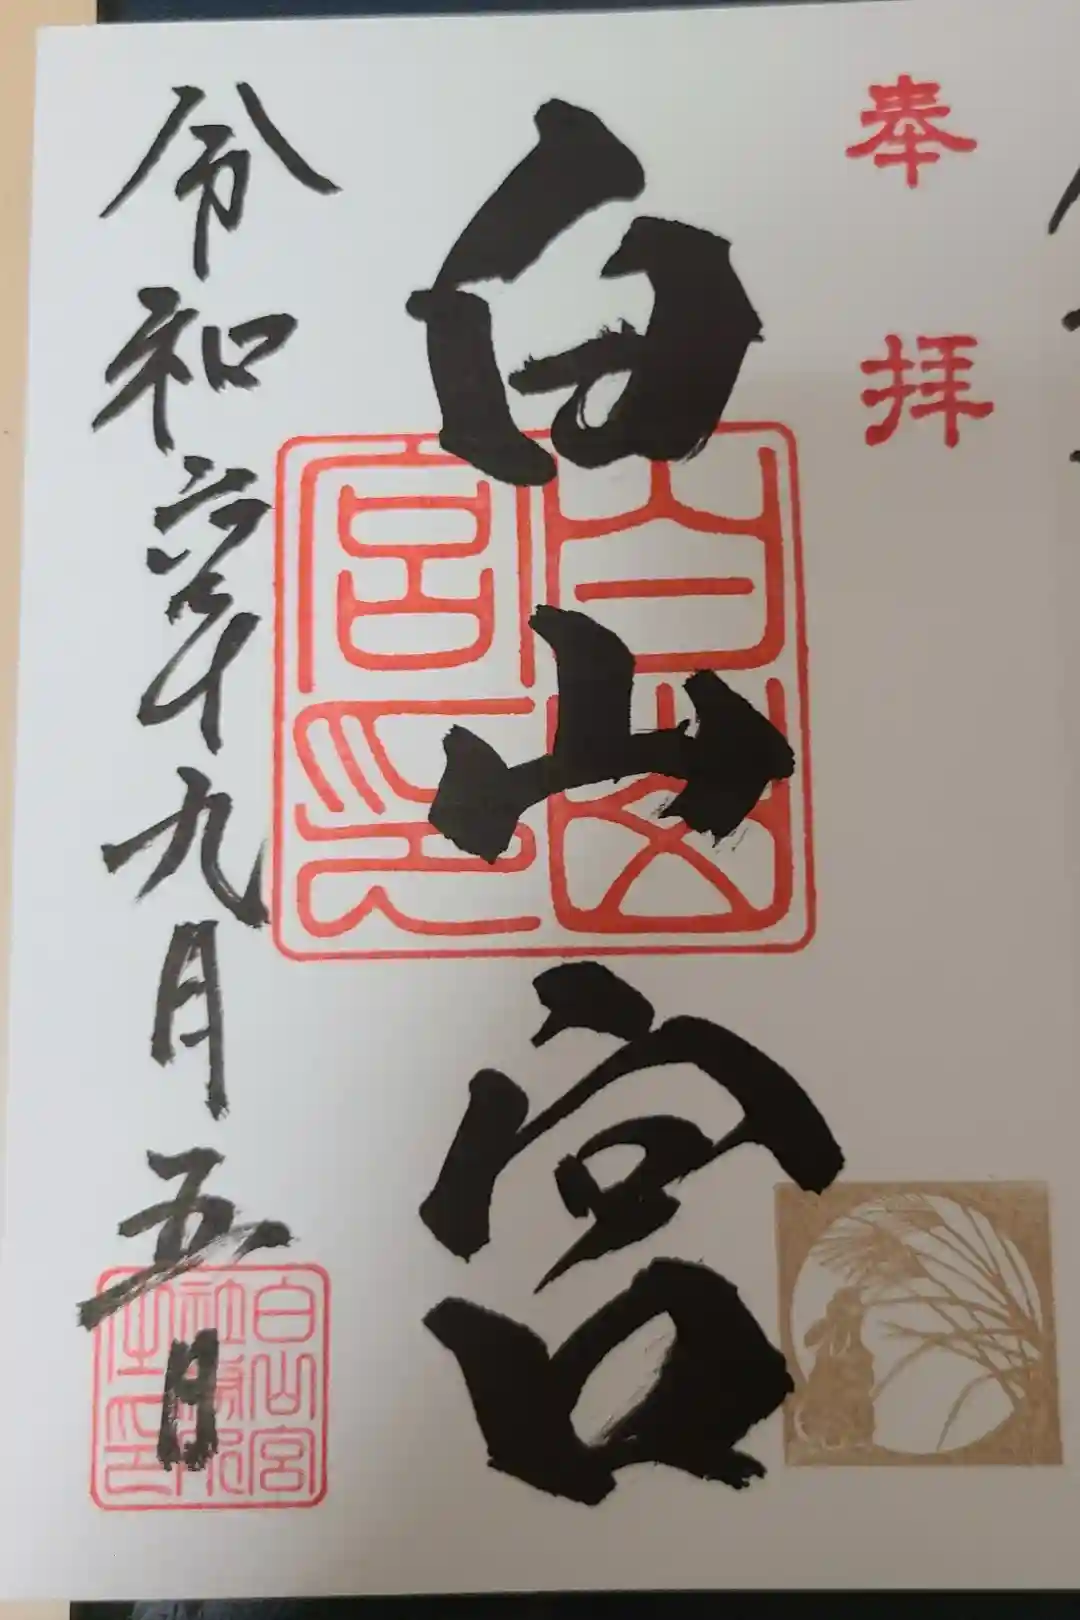 奉拝
白山宮
白山宮印
令和六年九月五日
白山宮
社務所
之印